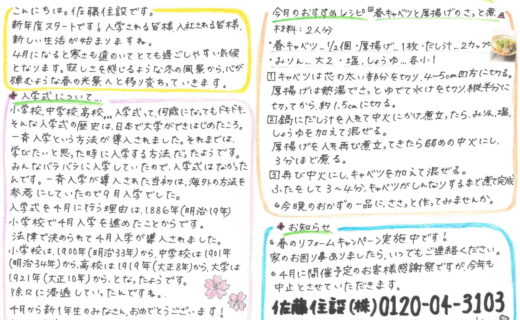 こんにちは。佐藤住設です。
新年度スタートです！入学される皆様、入社される皆様、
新しい生活が始まりますね。
4月になると寒さも遠のいてとても過ごしやすい気候
となります。寂しさを感じるような冬の風景から、心が
弾むような春の光景へと移り変わっていきます。
入学式について…
小学校、中学校、高校、、、入学式って、何歳になってもドキドキ。
そんな入学式の歴史は、日本で大学ができはじめたころ。
一斉入学という方法が導入されました。それまでは、
学びたいと思った時に入学する方法だったようです。
みんなバラバラに入学していたので、入学式はなかった
んです。一斉入学が導入された当初は、海外の方法を
参考にしていたので9月入学でした。
入学式を4月に行う理由は、1886年(明治19年)
小学校で4月入学を進めたことからです。
法律で決められて4月入学が導入されました。
小学校は、1900年(明治33年)から、中学校は1901年
(明治34年)から、高校は1919年(大正8年)から、大学は
1921年(大正10年)から、となったようです。
徐々に浸透していったんですね。
4月から新1年生のみなさん、おめでとうございます！
今月のおすすめレシピ『春キャベツと厚揚げのさっと煮』
材料：2人分
春キャベツ…1/2個・厚揚げ…1枚・だし汁…2カップ
みりん…大2・塩、しょうゆ…各小1
①キャベツは芯の太い部分を切り、4~5cm四方に切る。
厚揚げは熱湯でさっとゆでて水けをきり、縦半分に
切ってから、約1.5cmに切る。
②鍋にだし汁を入れて中火にかけ煮立ったら、みりん、塩、
しょうゆを加えて混ぜる。
厚揚げを入れ再び煮立ってきたら弱めの中火にし、
3分ほど煮る。
③再び中火にし、キャベツを加えて混ぜる。
ふたをして3~4分、キャベツがしんなりするまで煮て完成
今晩のおかずの一品に、ささっと作ってみませんか。
お知らせ
春のリフォームキャンペーン実施中です！
家のお困り事ありましたら、いつでもご連絡ください。
4月に開催予定のお客様感謝祭ですが、今年も
中止とさせていただきます。
佐藤住設(株) 0120-04-3103